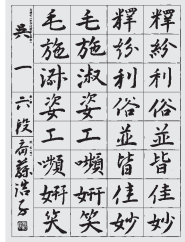 釋紛利俗並皆佳妙
釋紛利俗並皆佳妙
毛施淑姿工嚬妍笑
毛施淑姿工嚬妍笑
吳一 六段 斎藤浩子